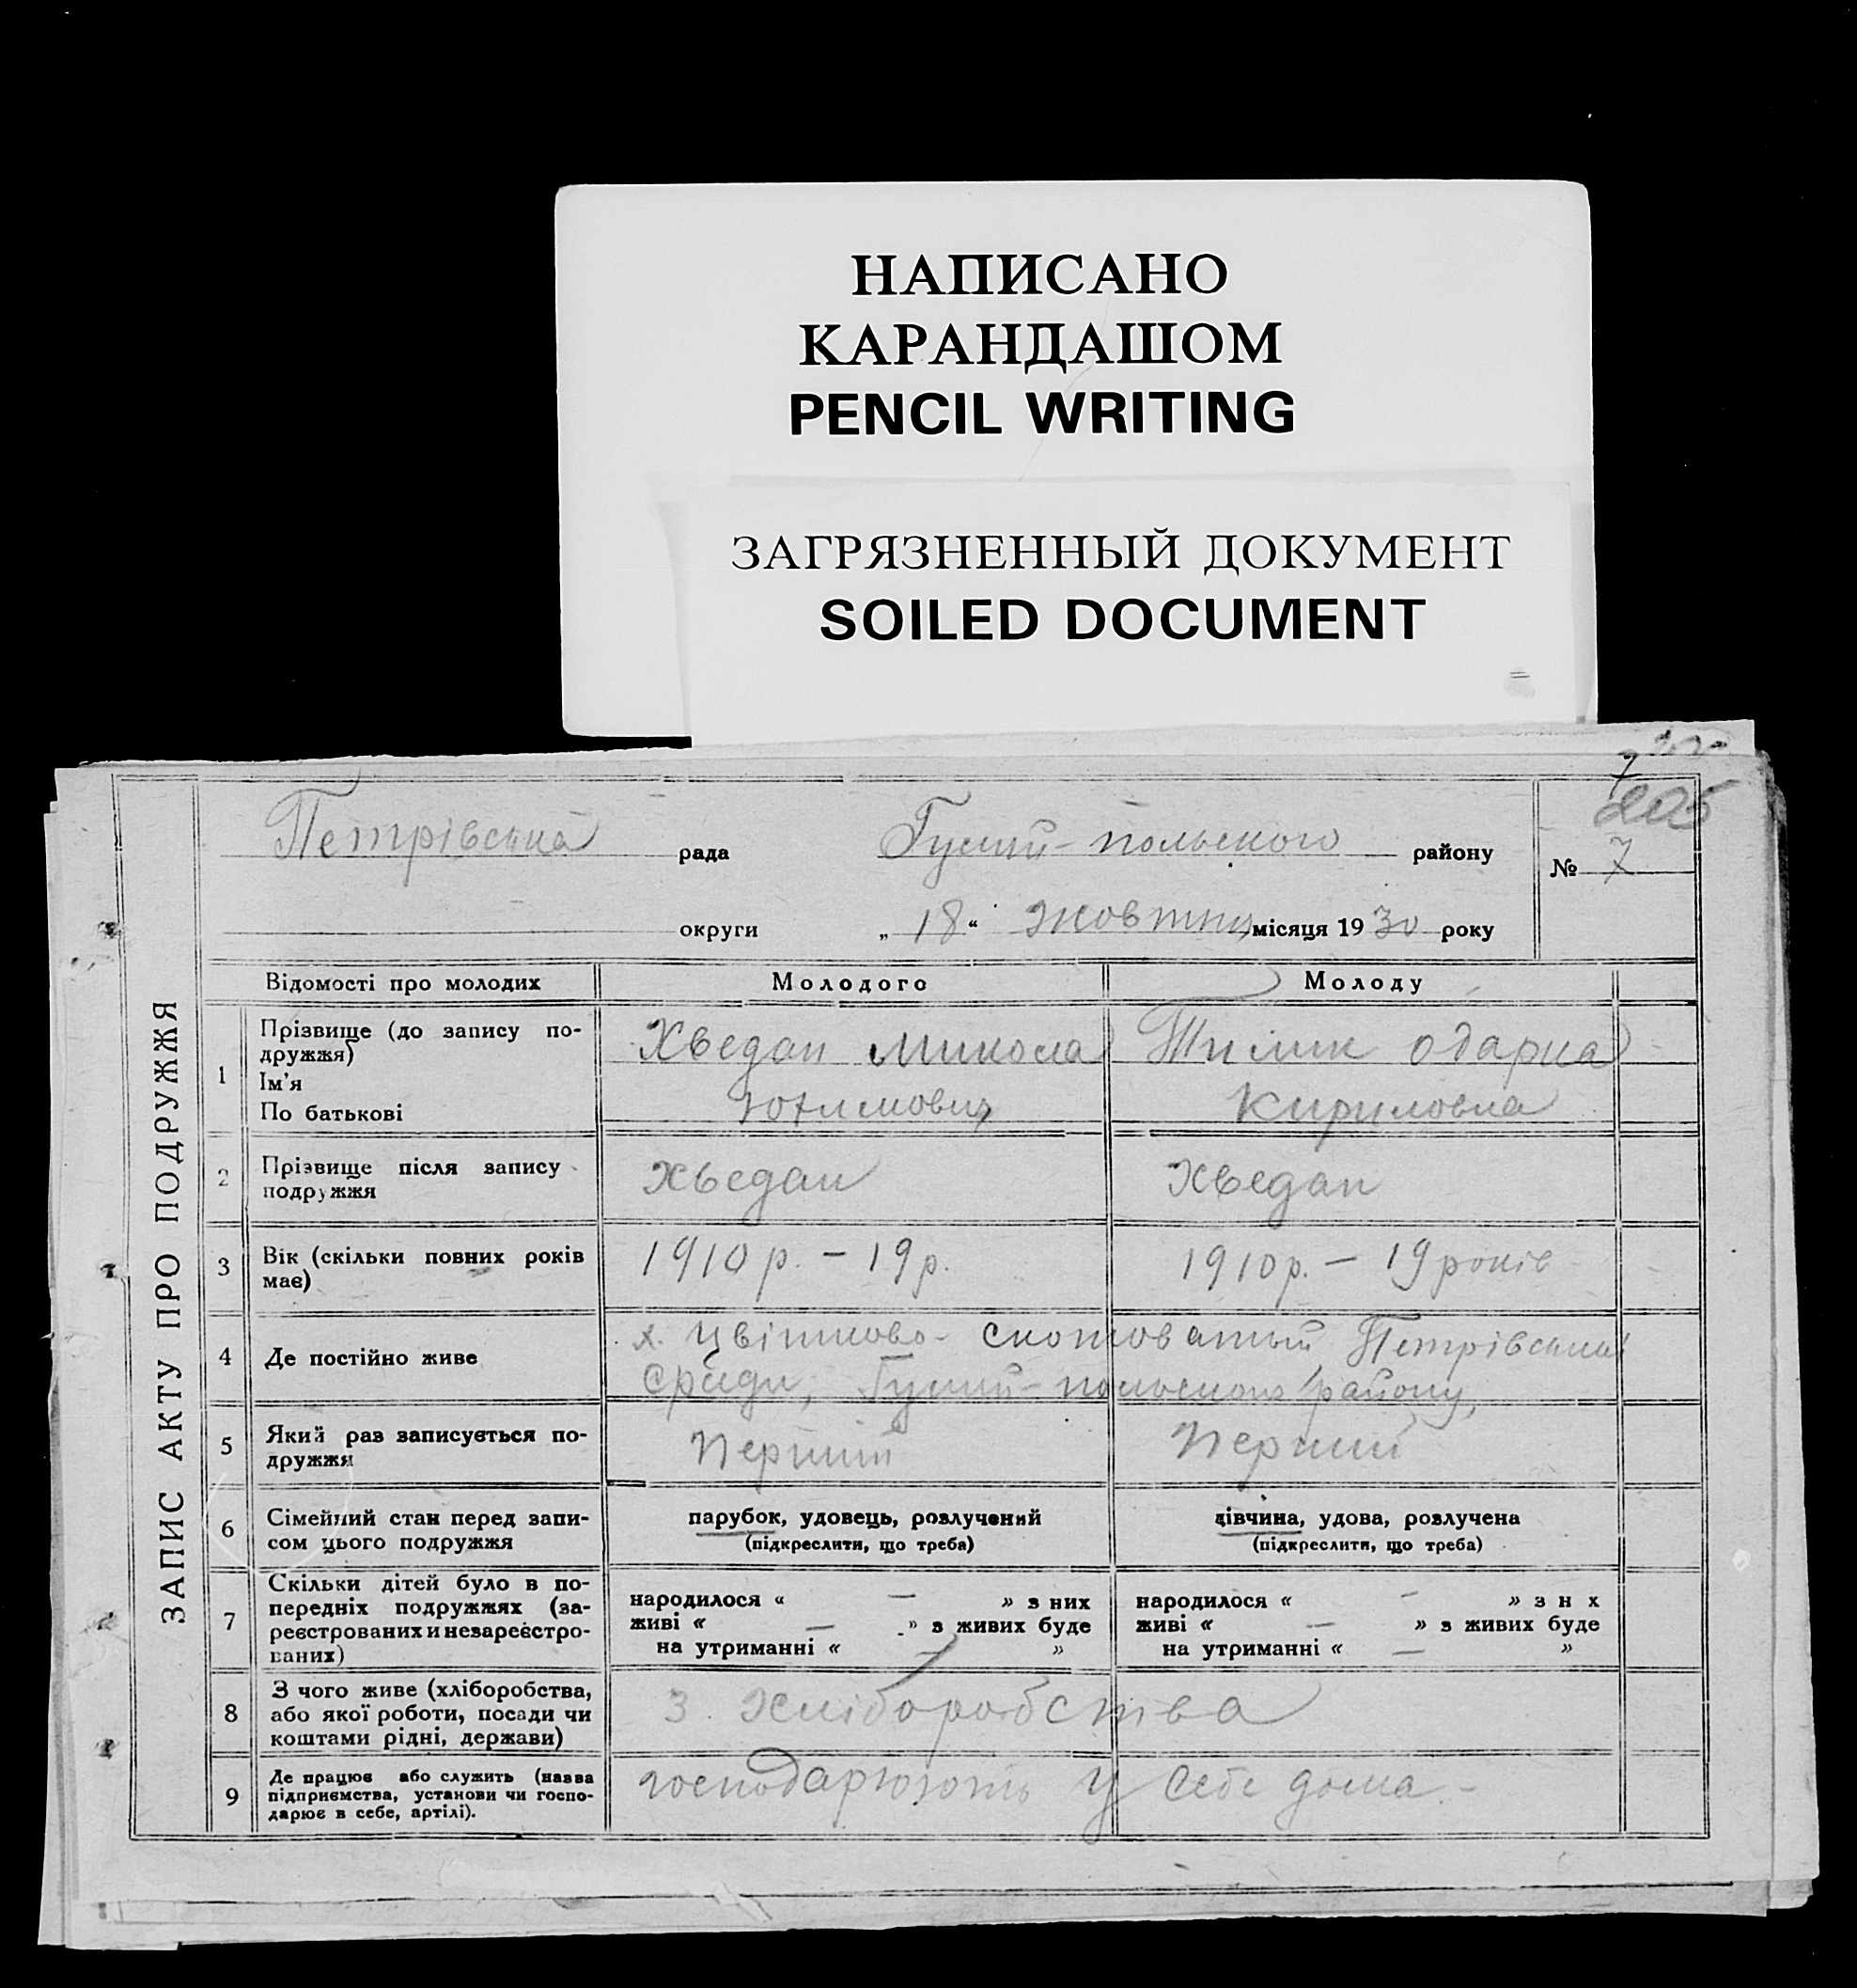 НАПИСАНО
КАРАНДАШОМ
PENCIL WRITING
ЗАГРЯЗНЕННЫЙ ДОКУМЕНТ
SOILED DOCUMENT
7
205
ЗАПИС АКТУ ПРО ПОДРУЖЖЯ
Петрівська рада Гуляй-польского району № 7
округи „18“ жовтня місяця 1930 року
Відомості про молодих Молодого Молоду
1 Прізвище (до запису по-
дружжя)
Ім'я
По батькові
Хведан Микола
Юхимович
Одарка
Кириловна
2 Прізвище після запису
подружжя
Хведан
Хведан
3 Вік (скільки повних років
має)
1910 р. – 19 р.
1910 р. – 19 років
4 Де постійно живе
х. Цвітково- Петрівської
с/ради, Гуляй-польского району,
5 Який раз записується по-
дружжя
Перший
Перший
6 Сімейний стан перед запи-
сом цього подружжя
парубок, удовець, розлучений
(підкреслити, що треба)
дівчина, удова, розлучена
(підкреслити, що треба)
7 Скільки дітей було в по-
передніх подружжях (за-
реєстрованих и незареєстро-
ваних)
народилося « — » з них
живі « — » з живих буде
на утриманні « — »
народилося « — » з н х
живі « — » з живих буде
на утриманні « — »
8 З чого живе (хліборобства,
або якої роботи, посади чи
коштами рідні, держави)
З хліборобства
9 Де працює або служить (назва
підприємства, установи чи госпо-
дарює в себе, артілі).
господарюють у себе дома. –